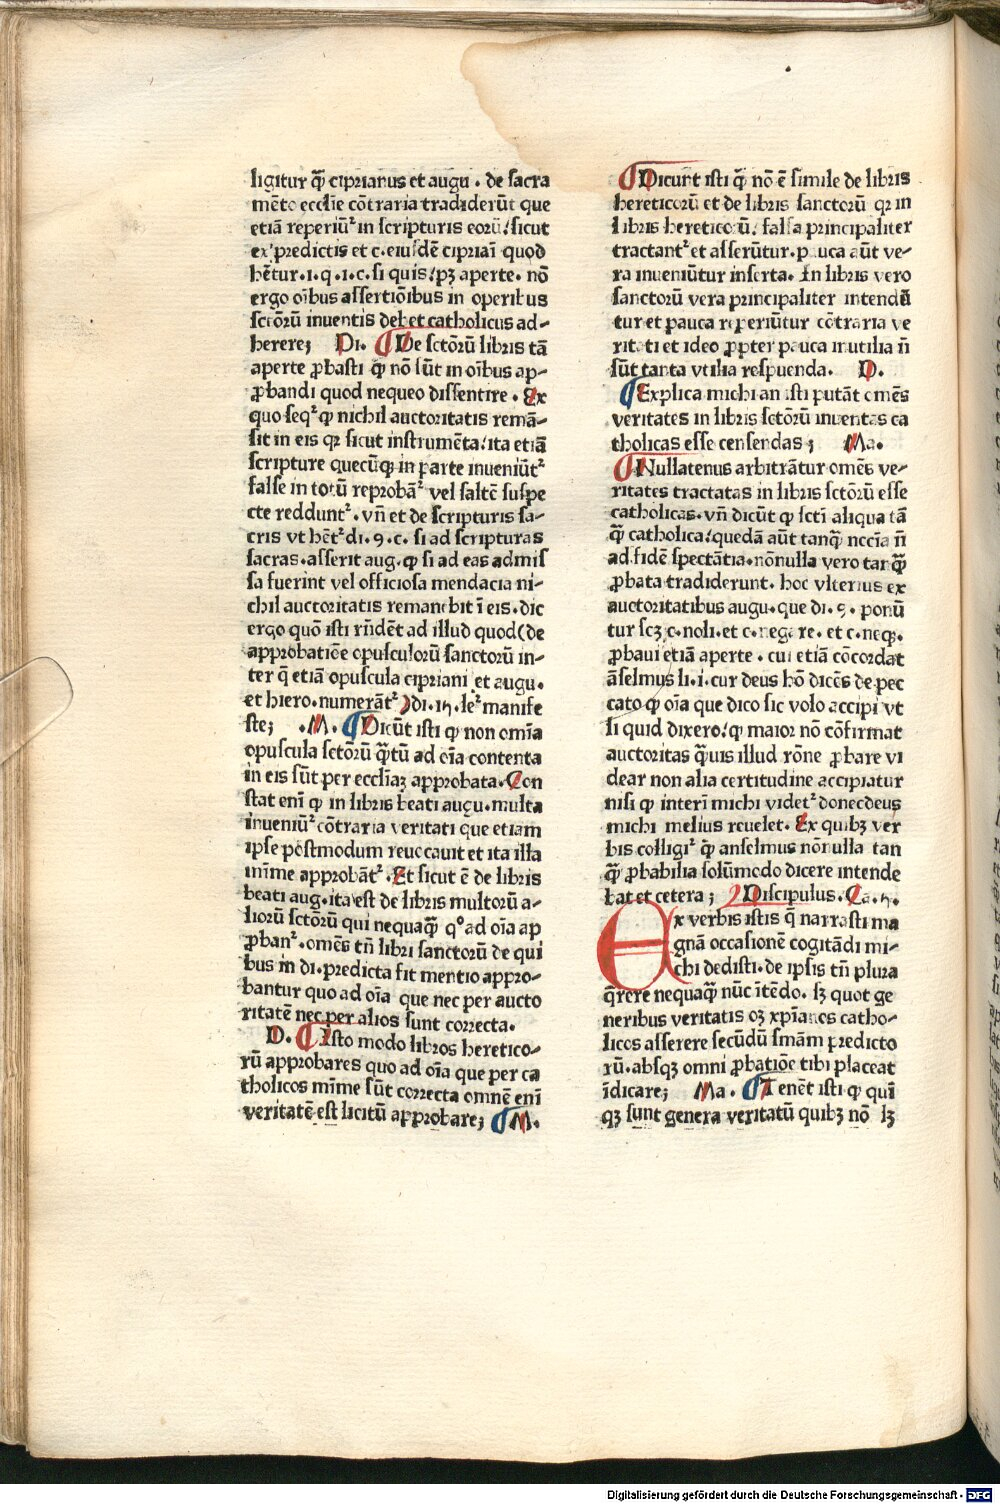 ligitur q̄ ciprianus et augu . de sacra
mēto ecclīe cōtraria tradiderūt que
etiā reperiūt᷑ in scripturis eorū / sicut
ex predictis et c. eiusdē cipriaī quod
hētur . 1 . q . 1 . c . si quis / pꝫ aperte . nō
ergo oībus assertiōibus in operibus
sctōrū inuentis debet catholicus ad-
herere ; Di. De sctōrū libris tā
aperte ꝓbasti q̄ nō sūt in oībus ap-
ꝓbandi quod nequeo dissentire . Ex
quo seq᷑ ꝙ nichil auctoritatis remā-
sit in eis qꝛ sicut instrumēta / ita etiā
scripture quecūqꝫ in parte inueniūt᷑
false in totū reprobā᷑ vel saltē suspe
cte reddunt᷑ . vn̄ et de scripturis sa-
cris vt hēt᷑ di . 9 . c . si ad scripturas
sacras . asserit aug . ꝙ si ad eas admis
sa fuerint vel officiosa mendacia ni-
chil auctoritatis remanebit ī eis . dic
ergo quō isti rn̄dēt ad illud quod (de
approbatiōe opusculorū sanctorū in-
ter q̄ etiā opuscula cipriani et augu .
et hiero . numerāt᷑ ) di . 15 . le᷑ manife
ste ; . M . Dicūt isti ꝙ non omīa
opuscula sctōrū q̄tū ad oīa contenta
in eis sūt per ecclīaꝫ approbata . Con
stat enī ꝙ in libris beati augu . multa
inueniū᷑ cōtraria veritati que etiam
ipse postmodum reuocauit et ita illa
mīme approbāt᷑ . Et sicut ē de libris
beati aug . ita est de libris multorū a-
liorū sctōrū qui nequaq̄ qº ad oīa ap
ꝓban᷑ . omēs tn̄ libri sanctorū de qui
bus in di . predicta fit mentio appro-
bantur quo ad oīa que nec per aucto
ritatē nec per alios sunt correcta .
D . Isto modo libros heretico-
rū approbares quo ad oīa que per ca
tholicos mīme sūt correcta omnē enī
veritatē est licitū approbare ; M .
Dicunt isti q̄ nō ē simile de libris
hereticorū et de libris sanctorū qꝛ in
libris hereticorū / falsa principaliter
tractant᷑ et asserūtur . pauca aūt ve-
ra inueniūtur inserta . In libris vero
sanctorū vera principaliter intendū
tur et pauca reperiūtur cōtraria ve
ritati et ideo ꝓpter pauca inutilia n̄
sūt tanta vtilia respuenda . D .
Explica michi an isti putāt omēs
veritates in libris sctōrū inuentas ca
tholicas esse censendas ; Ma .
Nullatenus arbitrātur omēs ve-
ritates tractatas in libris sctōrū esse
catholicas . vn̄ dicūt ꝙ sctī aliqua tā
q̄ catholica / quedā aūt tanq̄ nccīa n̄
ad fidē spectātia . nōnulla vero tanq̄
ꝓbata tradiderunt . hoc vlterius ex
auctoritatibus augu . que di . 9 . ponū
tur scꝫ c . noli . et c . negare . et c . neqꝫ .
ꝓbaui etiā aperte . cui etiā cōcordat
āselmus li . i . cur deus hō dicēs de pec
cato ꝙ oīa que dico sic volo accipi vt
si quid dixero / ꝙ maior nō cōfirmat
auctoritas q̄uis illud rōne ꝓbare vi
dear non alia certitudine accipiatur
nisi ꝙ interī michi videt᷑ donec deus
michi melius reuelet . Ex quibꝫ ver
bis colligi᷑ q̄ anselmus nōnulla tan
q̄ ꝓbabilia solūmodo dicere intende
bat et cetera ; Discipulus . Ca . 5 .
Ex verbis istis q̄ narrasti ma
gnā occasionē cogitādi mi-
chi dedisti . de ipsis tn̄ plura
q̄rere nequaq̄ nūc ītēdo . sꝫ quot ge
neribus veritatis oꝫ xpīanos catho-
licos asserere secūdū smām predicto
rū . absqꝫ omni ꝓbatiōe tibi placeat
īdicare ; Ma . Tenēt isti ꝙ quī
qꝫ sunt genera veritatū quibꝫ nō lꝫ
Digitalisierung gefördert durch die Deutsche Forschungsgemeinschaft - DFG